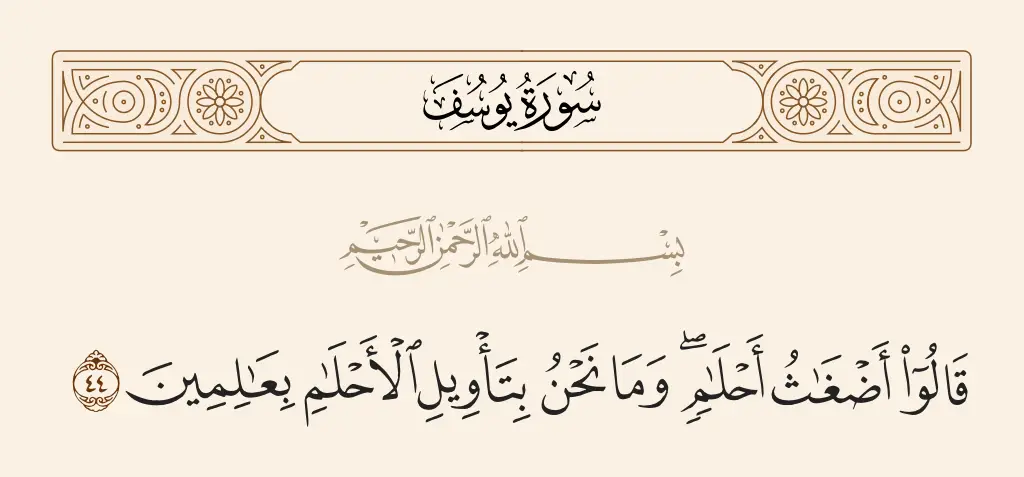 سُورَةُ يُوسُفَ
بِسْمِ ٱللَّهِ ٱلرَّحْمَٰنِ ٱلرَّحِيمِ
قَالُوٓا۟ أَضْغَٰثُ أَحْلَٰمٍۢ ۖ وَمَا نَحْنُ بِتَأْوِيلِ ٱلْأَحْلَٰمِ بِعَٰلِمِينَ ٤٤